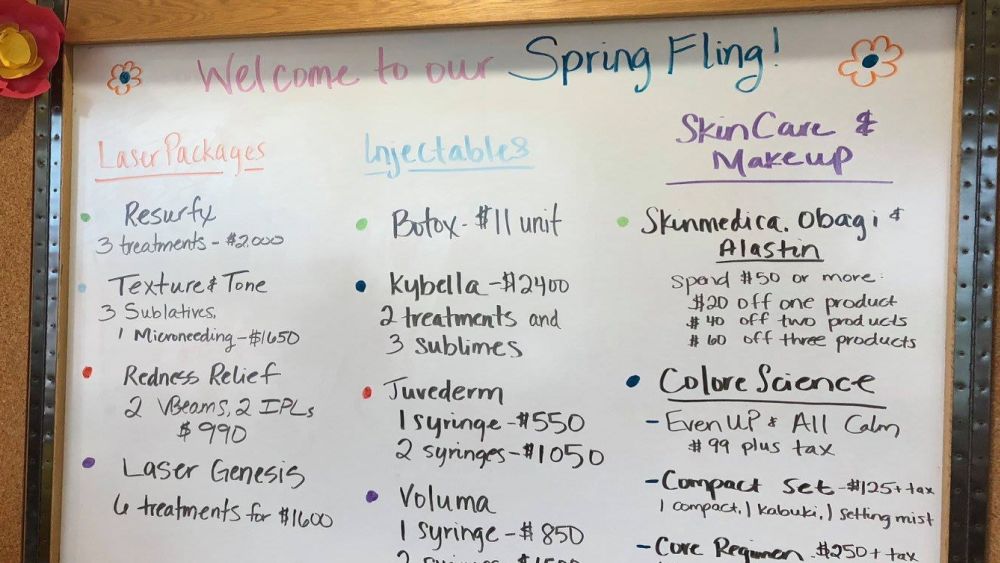 Welcome to our Spring Fling!
Laser Packages
Resurfx
3 treatments - $2,000
Texture & Tone
3 Sublatives,
1 Microneeding - $1650
Redness Relief
2 VBeams, 2 IPLs
$990
Laser Genesis
6 treatments for $1600
Injectables
Botox - $11 unit
Kybella - $2400
2 treatments and
3 sublimes
Juvederm
1 syringe - $550
2 syringes - $1050
Voluma
1 syringe - $850
Skin Care &
Makeup
Skinmedica, Obagi &
Alastin
Spend $50 or more:
$20 off one product
$40 off two products
$60 off three products
Colore Science
- Even UP & All Calm
$99 plus tax
- Compact Set - $125 + tax
1 compact, 1 kabuki, 1 setting mist
- Core Regimen - $250 + tax